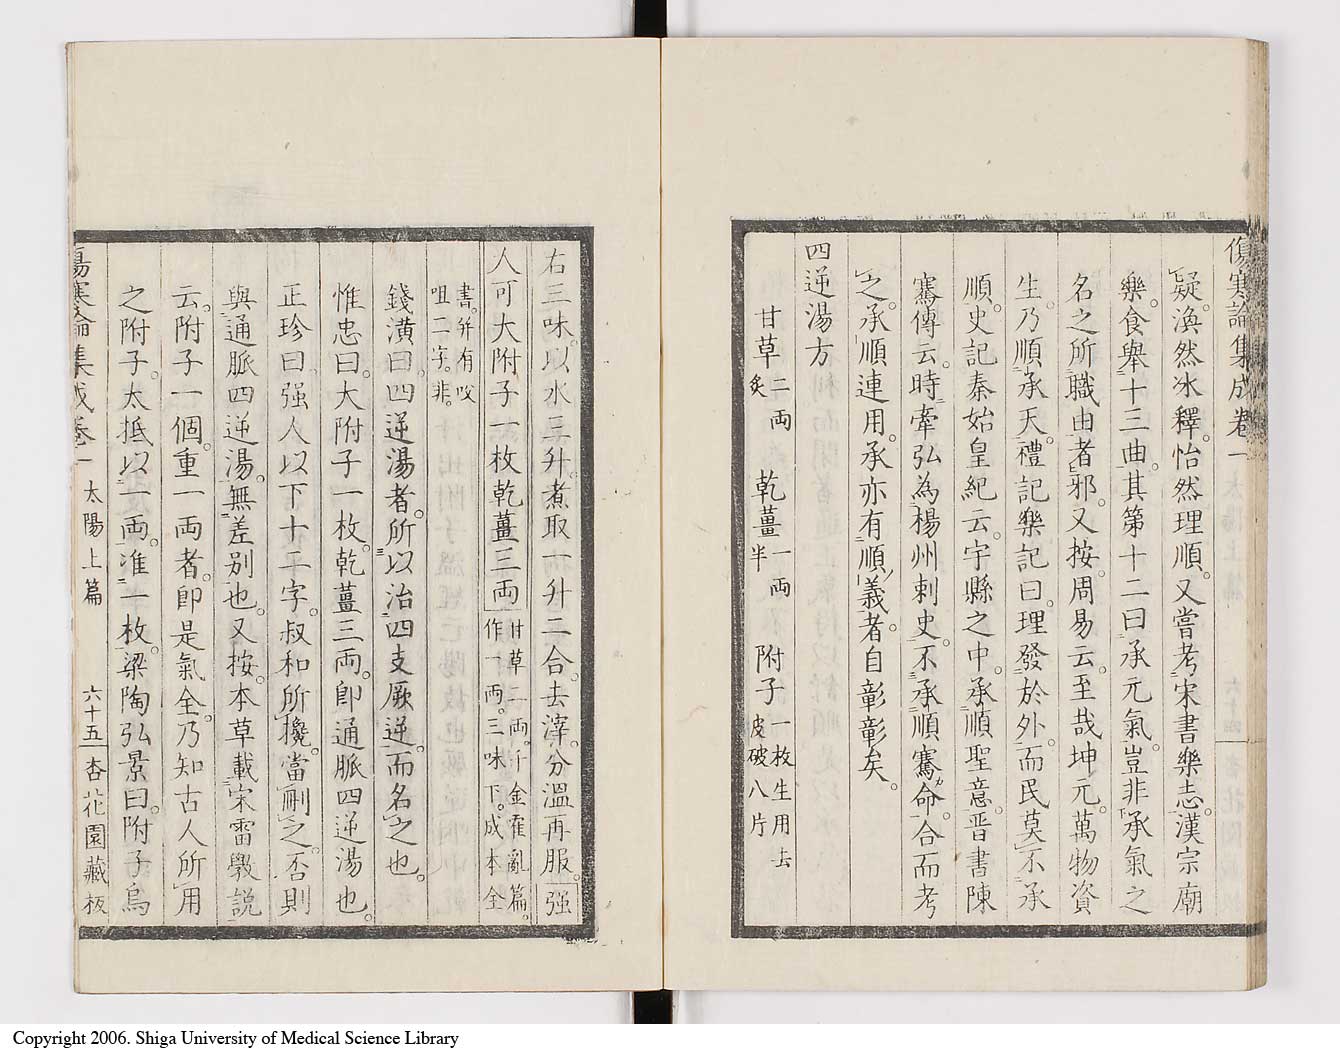 傷寒論集成卷一
疑。渙然冰釋。怡然理順。又嘗考宋書樂志。漢宗廟
樂。食舉十三曲。其第十二曰承元氣。豈非承氣之
名之所職由者邪。又按。周易云。至哉坤元。萬物資
生。乃順承天。禮記樂記曰。理發於外。而民莫不承
順。史記秦始皇紀云。宇縣之中。承順聖意。晋書陳
騫傳云。時牽弘為楊州刺史。不承順騫命。合而考
之。承順連用。承亦有順義者。自彰彰矣。
四逆湯方
甘草二両炙 乾薑一両半 附子一枚生用去皮破八片
右三味。以水三升。煮取一升二合。去滓。分溫再服。强
人可大附子一枚乾薑三両甘草二両。斤金霍亂篇。作一両。三味下。成本全
書。并有㕮咀二字。非。
錢潢曰。四逆湯者。所以治四支厥逆。而名之也。
惟忠曰。大附子一枚。乾薑三両。卽通脈四逆湯也。
正珍曰。强人以下十二字。叔和所攙。當刪之。否則
與通脈四逆湯。無差別也。又按。本草載。宋雷斅説
云。附子一個。重一両者。卽是氣全。乃知古人所用
之附子。太抵以一両。准一枚。梁陶弘景曰。附子烏
傷寒論集成卷一 太陽上篇 六十五 杏花園藏板
Copyright 2006. Shiga University of Medical Science Library